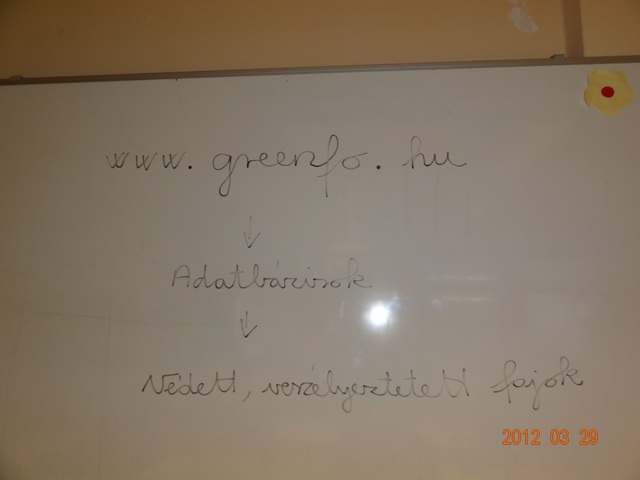 www.greenfo.hu
↓
Adatbázisok
↓
Védett, veszélyeztetett fajok
2012 03 29